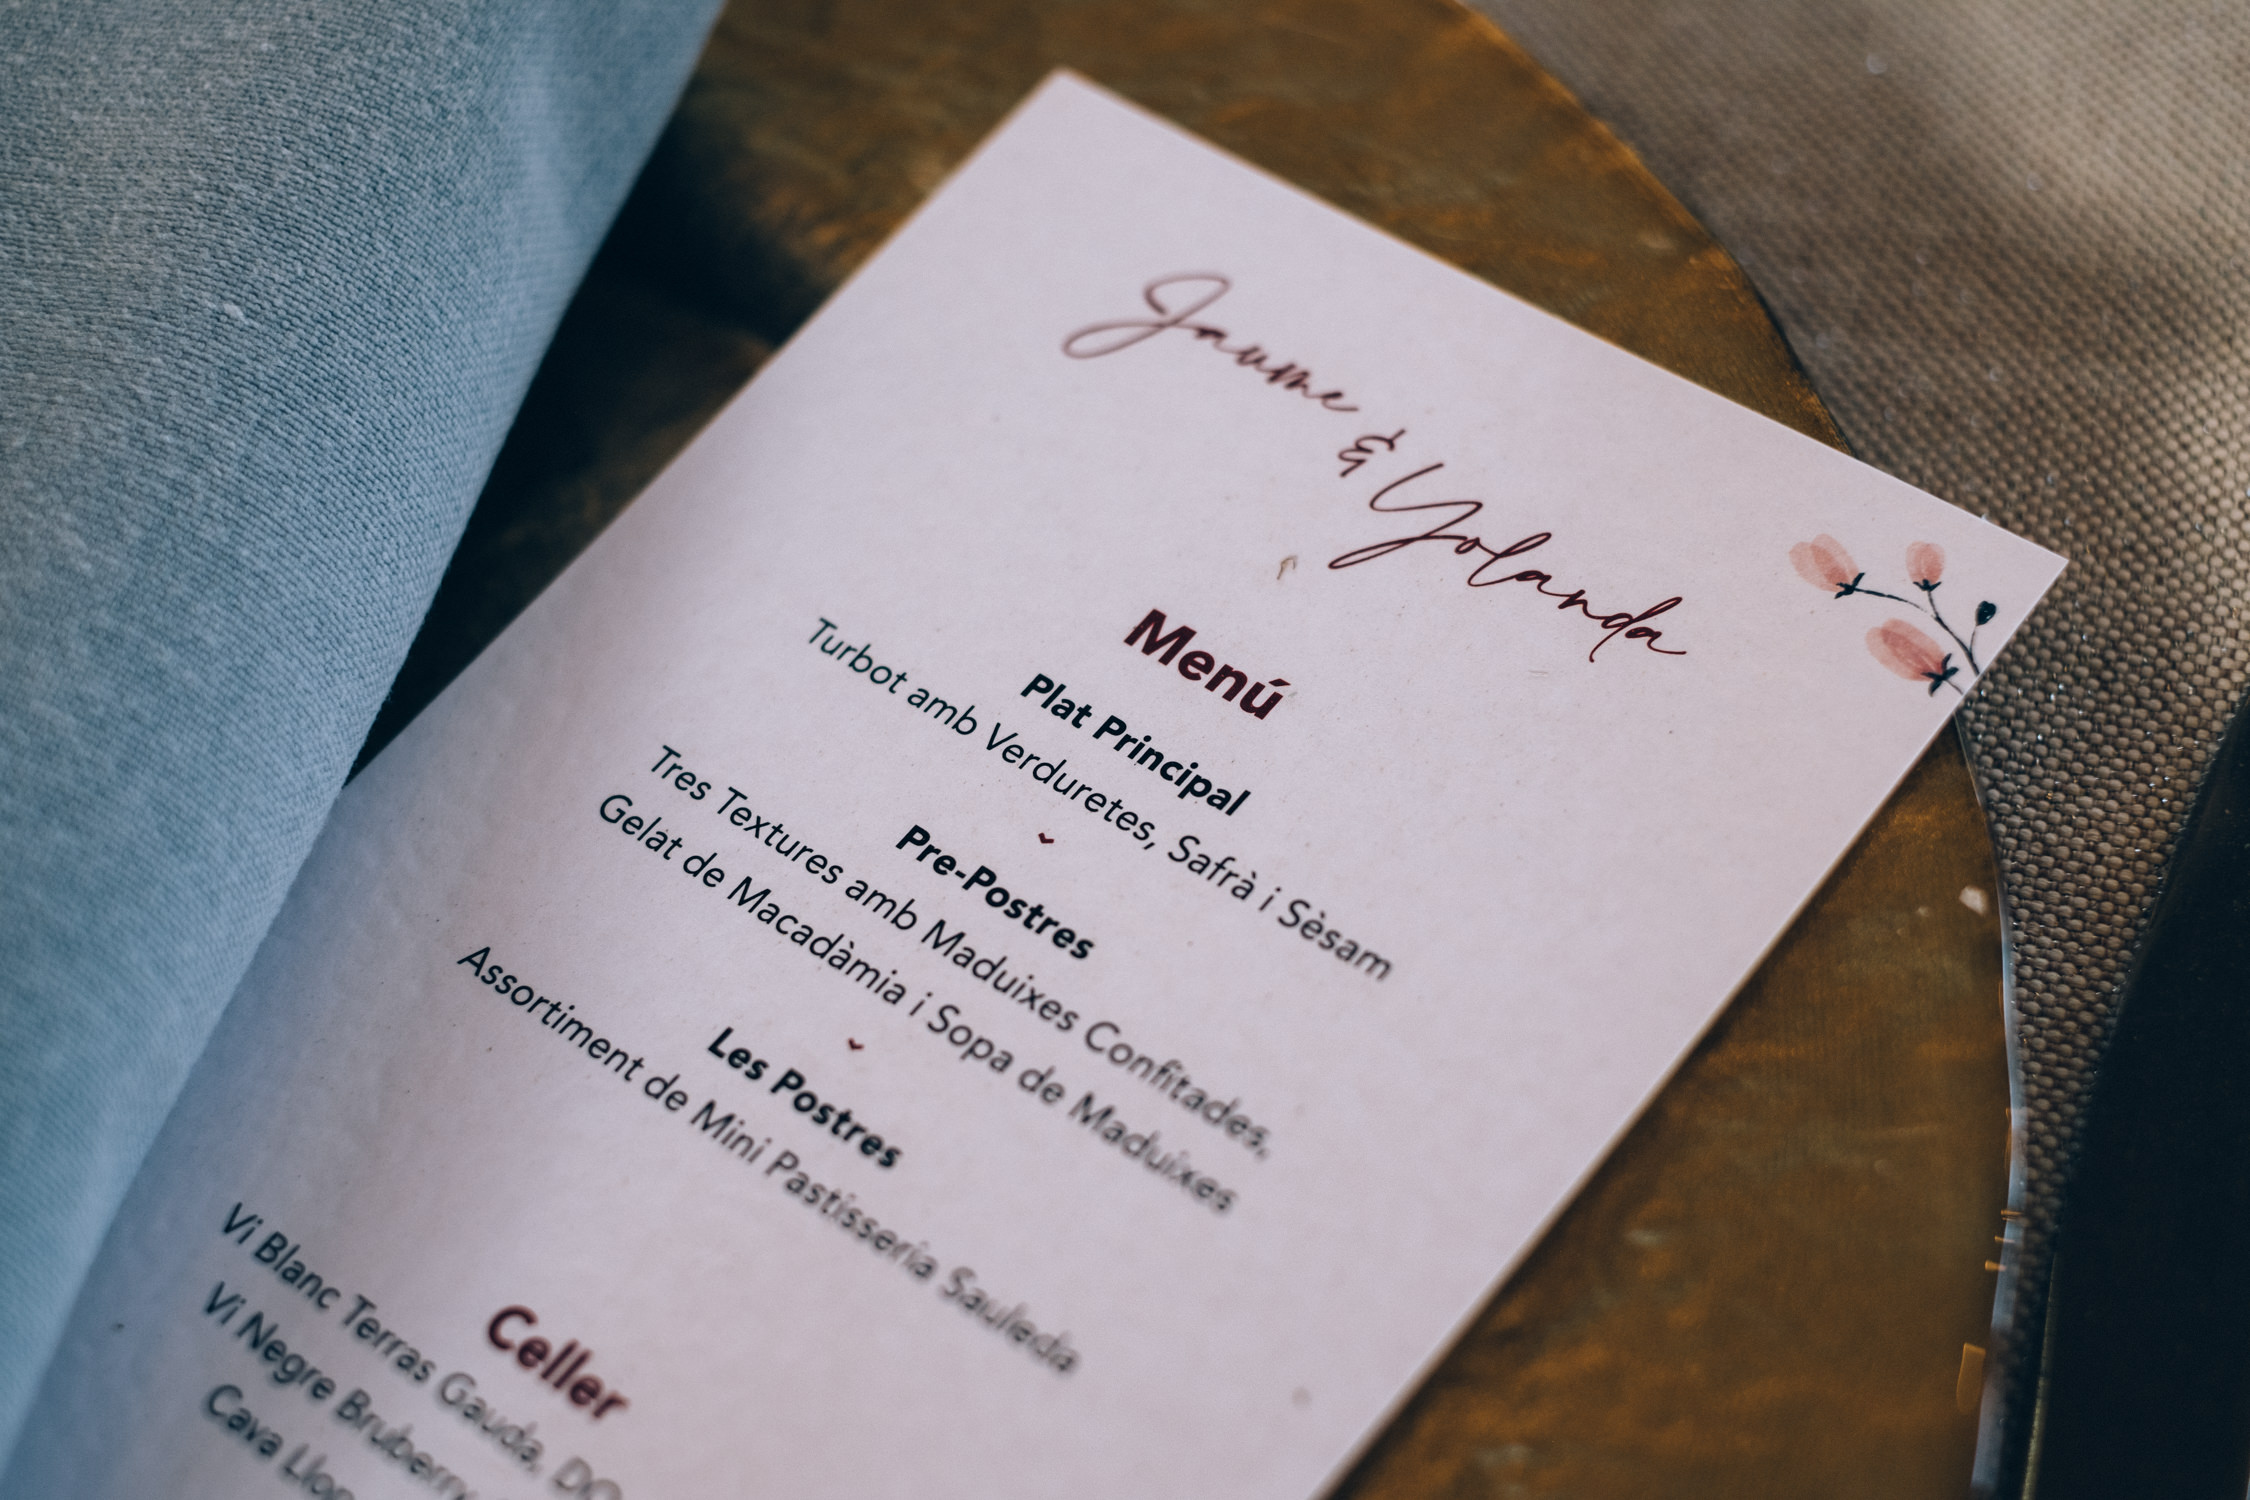 Jaume
& Yolanda
Menú
Plat Principal
Turbot amb Verduretes, Safrà i Sèsam
Pre-Postres
Tres Textures amb Maduixes Confitades,
Gelat de Macadàmia i Sopa de Maduixes
Les Postres
Assortiment de Mini Pastisseria Sauleda
Celler
Vi Blanc Terras Gauda, DO
Vi Negre Bruberry
Cava